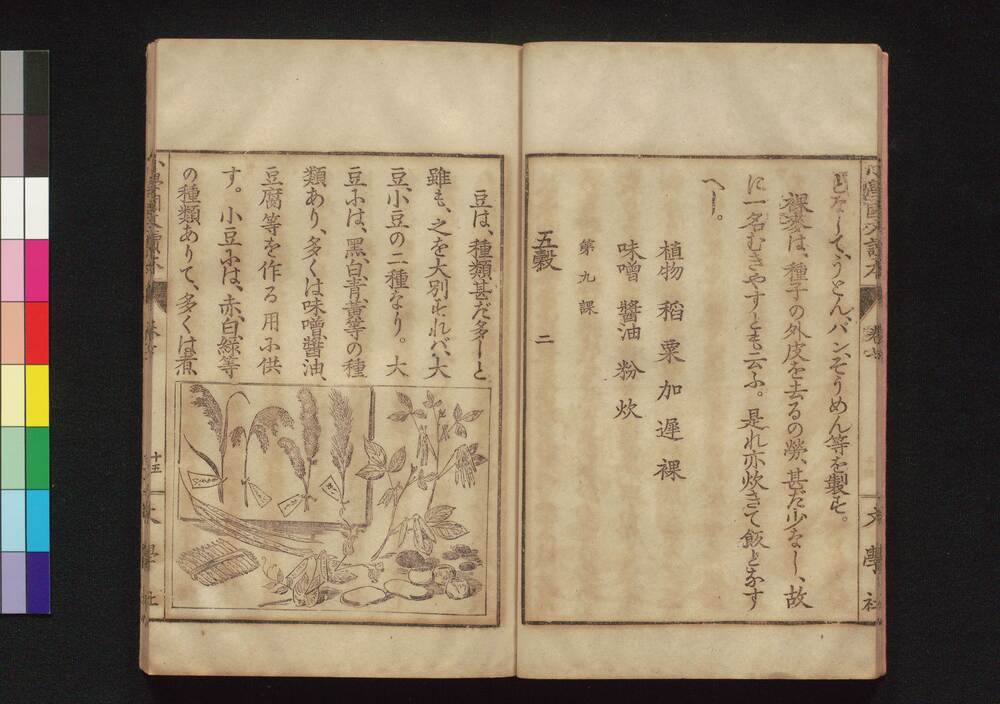 となして、うどん、パン、そうめん等を製す。
裸麥は、種子の外皮を去るの勞、甚だ少なし、故
に一名むきやすとも云ふ。是れ亦炊きて飯となす
べし。
植物 稻 粟 加 遲 裸
味噌 醬油 粉 炊
第九課
五穀 二
豆は、種類甚だ多しと
雖も、之を大別すれバ、大
豆、小豆の二種なり。大
豆には、黑、白、青、黃等の種
類あり、多くは味噌、醬油、
豆腐等を作る用に供
す。小豆には、赤、白、綠等
の種類ありて、多くは煮、
十五
文學社